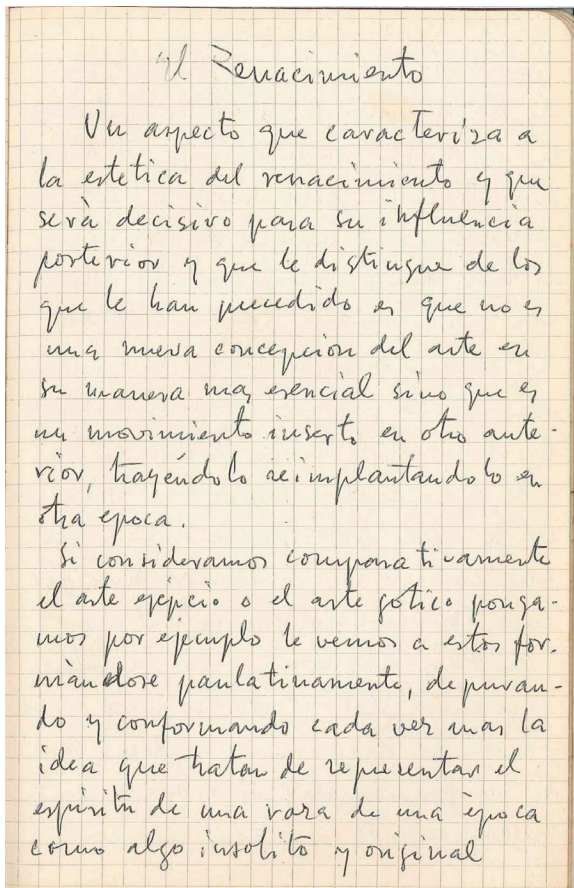 El Renacimiento
Un aspecto que caracteriza a
la estetica del renacimiento y que
será decisivo para su influencia
posterior y que le distingue de los
que le han precedido es que no es
una nueva concepcion del arte en
su manera mas esencial sino que es
un movimiento inserto en otro ante-
rior, trayéndolo reimplantandolo en
otra epoca.
Si consideramos comparativamente
el arte ejepcio o el arte gotico ponga-
mos por ejemplo le vemos a estos for-
mándose paulatinamente, depuran-
do y conformando cada vez mas la
idea que tratan de representar el
espiritu de una raza de una época
como algo insolito y original